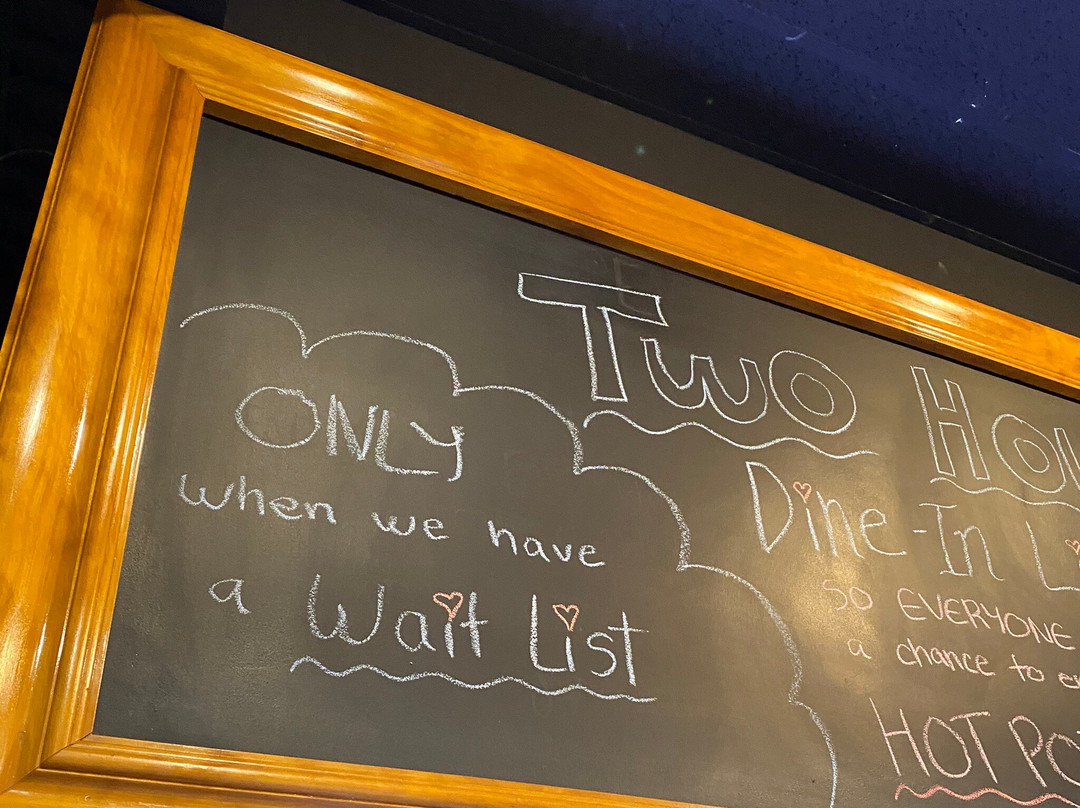 ONLY
when we have
a Wait List
Two Hou
Dine-In Li
SO EVERYONE
a chance to e
HOT PO